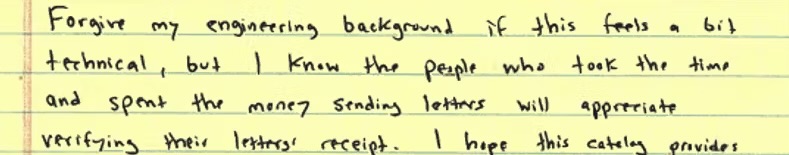 Forgive my engineering background if this feels a bit
technical, but I know the people who took the time
and spent the money sending letters will appreciate
verifying their letters' receipt. I hope this catelog provides